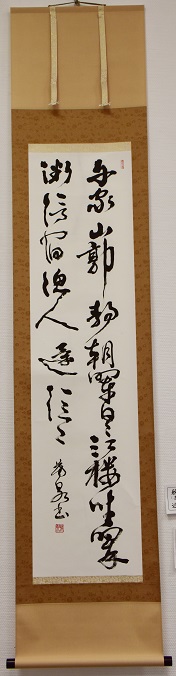 千家山郭静朝暉日々江樓坐翠
微信宿漁人還泛々
泉書